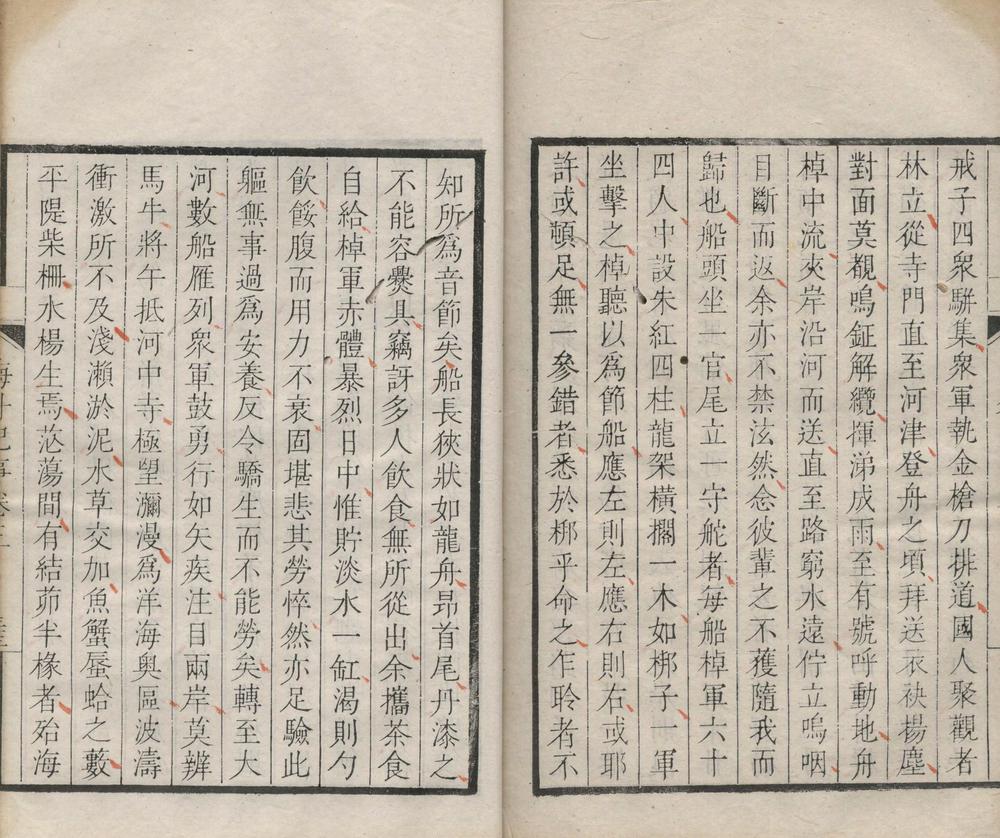 戒子四衆駢集衆軍執金槍刀排道國人聚觀者
林立從寺門直至河津登舟之頃拜送衣袂楊塵
對面莫覩鳴鉦解纜揮涕成雨至有號呼動地舟
棹中流夾岸沿河而送直至路窮水遠佇立嗚咽
目斷而返余亦不禁泫然念彼輩之不獲隨我而
歸也船頭坐一官尾立一守舵者每船棹軍六十
四人中設朱紅四柱龍架橫擱一木如梆子一軍
坐擊之棹聽以爲節船應左則左應右則右或耶
許或頓足無一參錯者悉於梆乎命之乍聆者不
知所爲音節矣船長狹狀如龍舟昂首尾丹漆之
不能容爨具竊訝多人飲食無所從出余攜茶食
自給棹軍赤體暴烈日中惟貯淡水一缸渴則勺
飲餒腹而用力不衰固堪悲其勞悴然亦足驗此
軀無事過爲安養反令驕生而不能勞矣轉至大
河數船雁列衆軍鼓勇行如矢疾注目兩岸莫辨
馬牛將午抵河中寺極望瀰漫爲洋海奧區波濤
衝激所不及淺瀨淤泥水草交加魚蟹蜃蛤之藪
平隄柴柵水楊生焉茫蕩間有結茆半椽者殆海
海外紀事 卷三